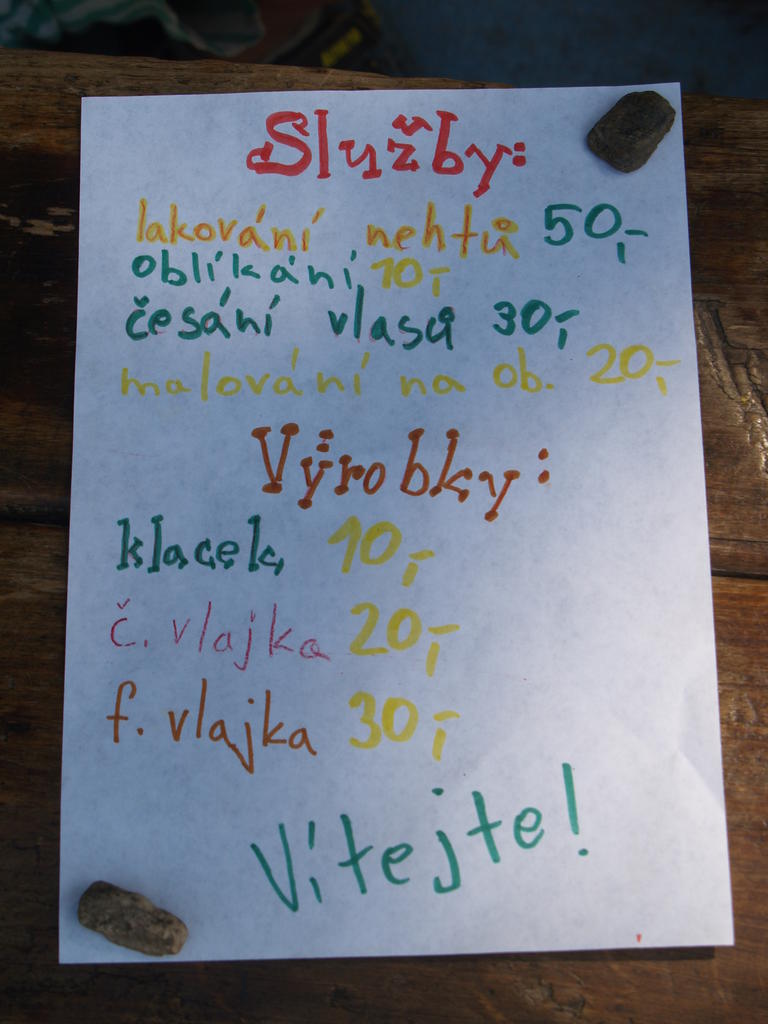 Služby:
lakování nehtů 50,-
oblíkání 10,-
česání vlasů 30,-
malování na ob. 20,-
Výrobky:
klacek 10,-
č. vlajka 20,-
f. vlajka 30,-
Vítejte!